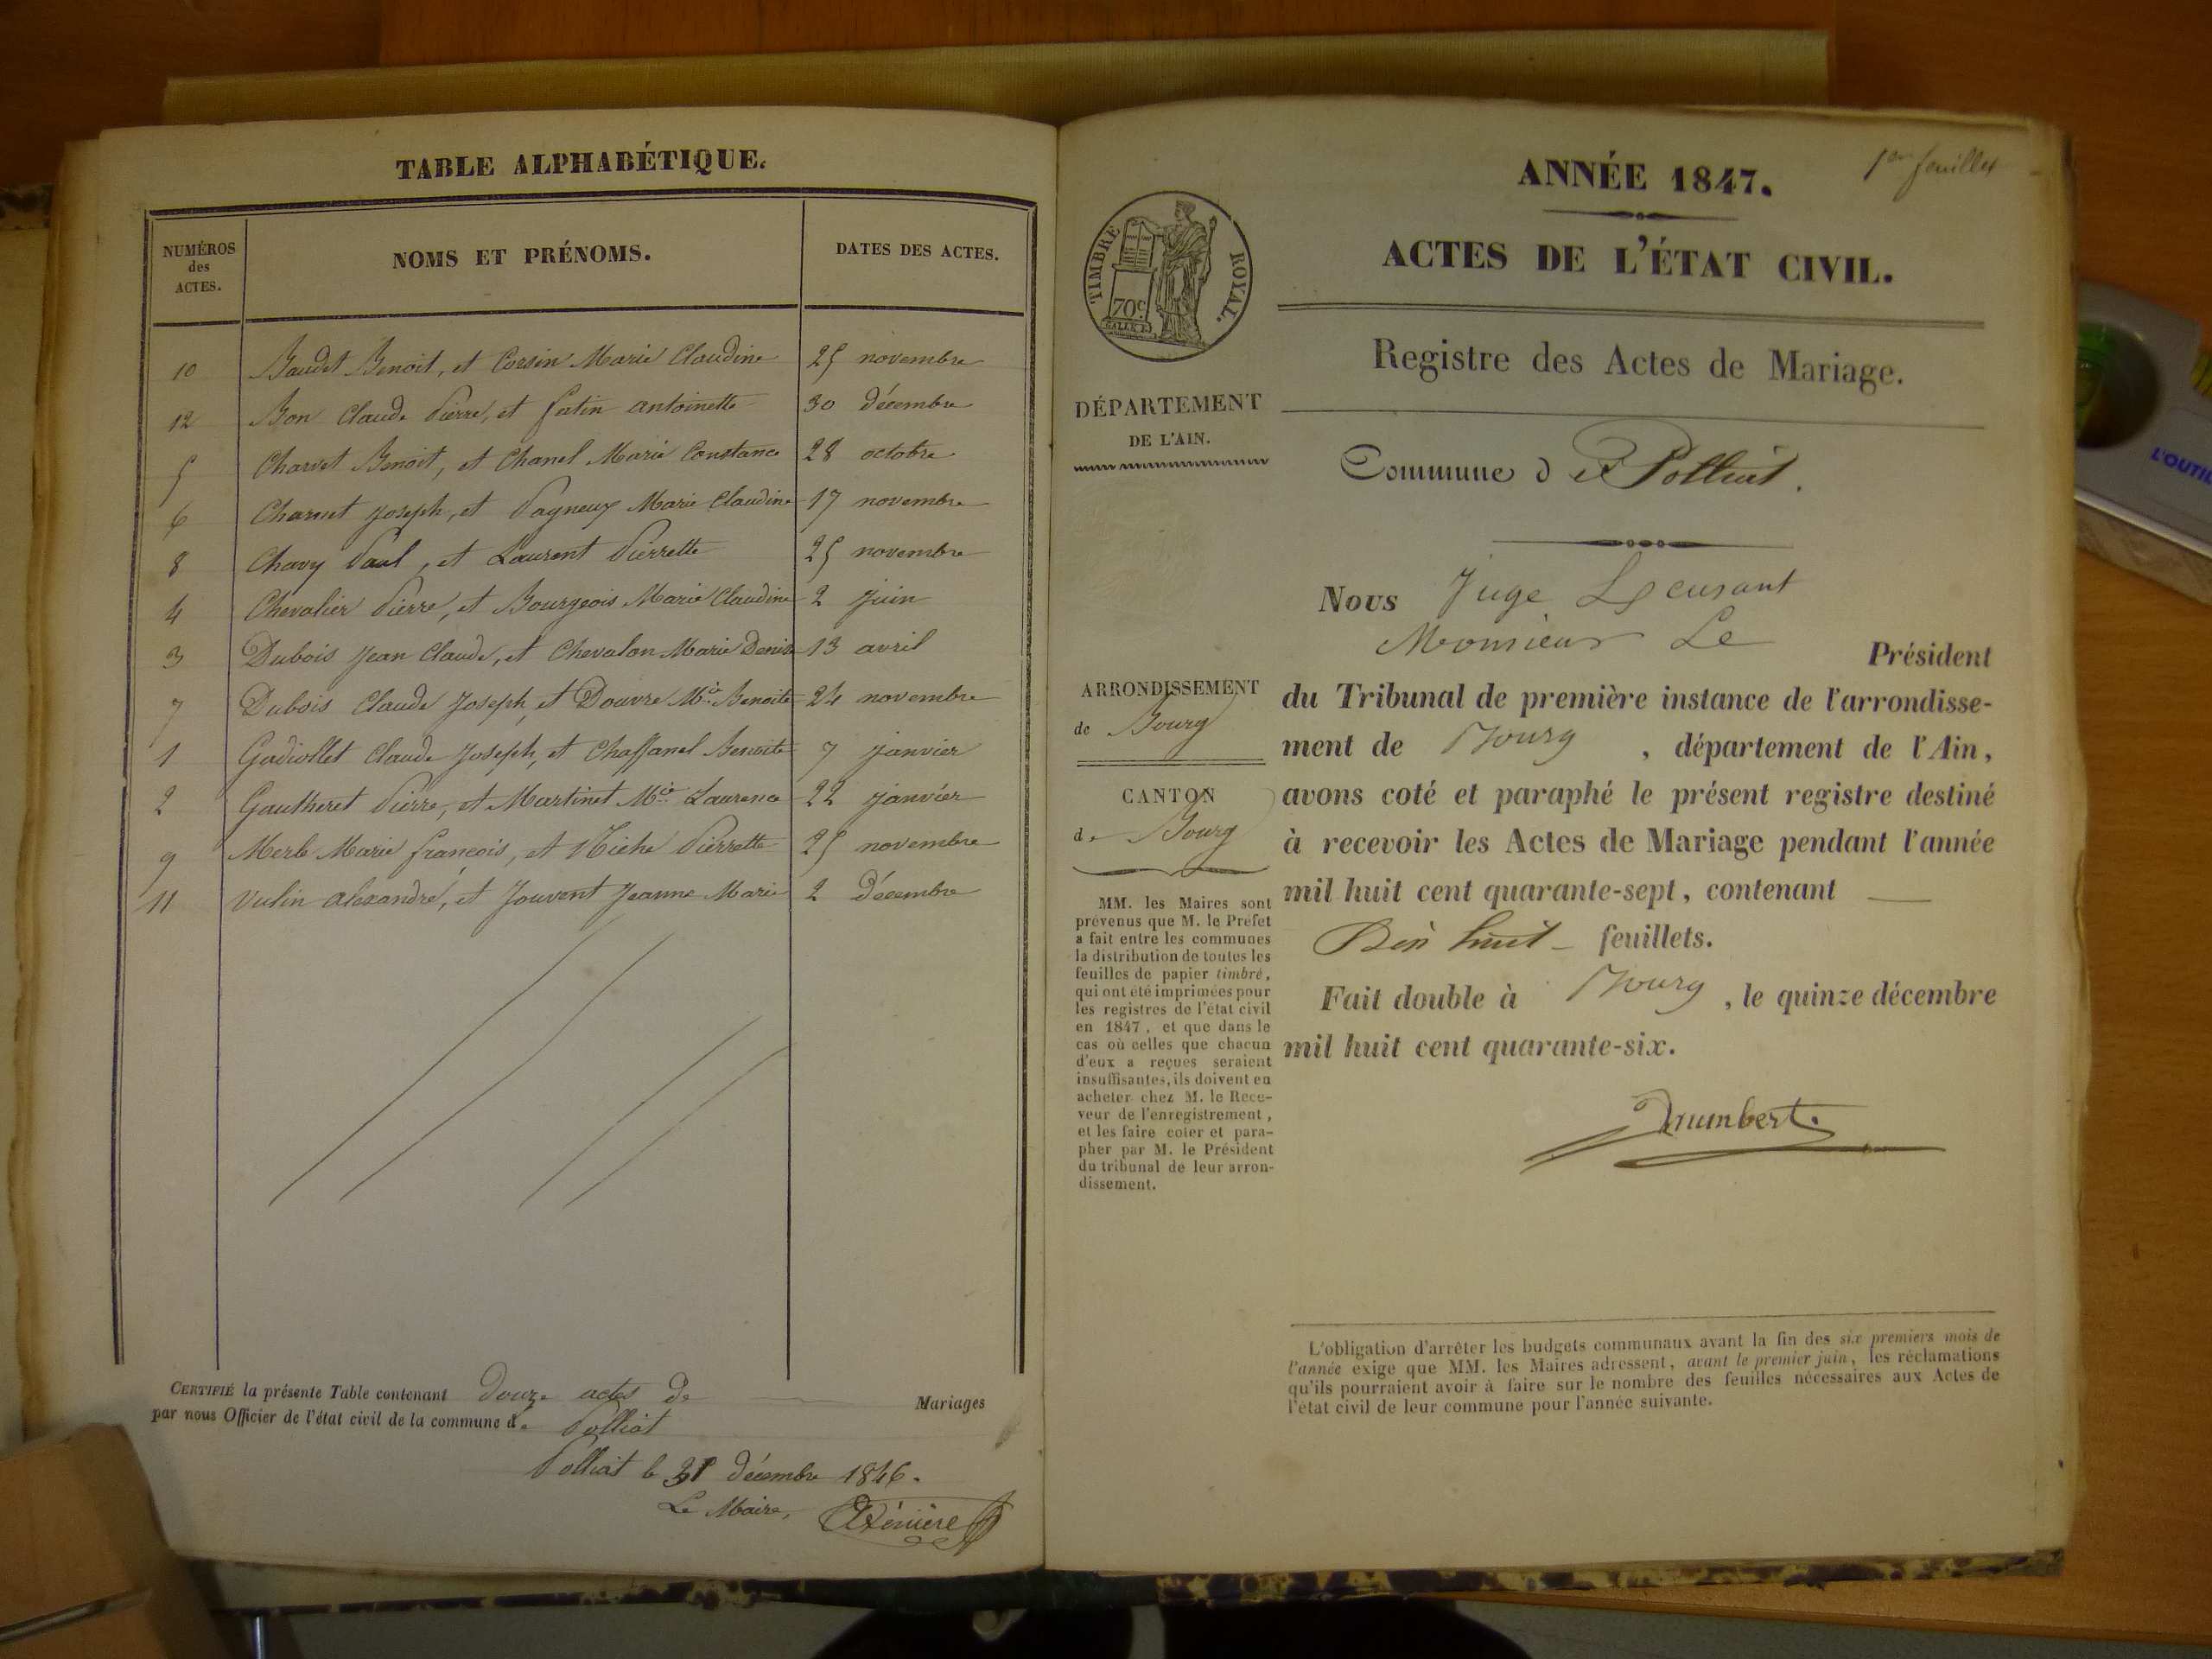 TABLE ALPHABÉTIQUE.
NUMÉROS
des
ACTES.
NOMS ET PRÉNOMS.
DATES DES ACTES.
10 Baudet Benoit, et Corsin Marie Claudine 25 novembre
12 Bon Claude Pierre, et futin antoinette 30 décembre
5 Charvet Benoit, et Chanel Marie Constance 28 octobre
6 Charnet Joseph, et Pagneux Marie Claudine 17 novembre
8 Chavy Paul, et Laurent Pierrette 25 novembre
4 Chevalier Pierre, et Bourgeois Marie Claudine 2 juin
3 Dubois Jean Claude, et Chevalon Marie Denise 13 avril
7 Dubois Claude Joseph, et Douvre Mie Benoite 24 novembre
1 Gadiollet Claude Joseph, et Chaffanel Benoite 7 janvier
2 Gautheret Pierre, et Martinet Mie Laurence 22 janvier
9 Merle Marie françois, et Pierrette 25 novembre
11 Vulin alexandre, et Jouvent Jeanne Marie 2 Décembre
CERTIFIÉ la présente Table contenant douze actes de Mariages
par nous Officier de l'état civil de la commune de Polliat
Polliat le 31 décembre 1846.
Le Maire,
1er feuillet
ANNÉE 1847.
ACTES DE L'ÉTAT CIVIL.
Registre des Actes de Mariage.
TIMBRE ROYAL.
70c
DÉPARTEMENT
DE L'AIN.
Commune de Polliat.
ARRONDISSEMENT
de Bourg
CANTON
de Bourg
MM. les Maires sont
prévenus que M. le Préfet
a fait entre les communes
la distribution de toutes les
feuilles de papier timbré,
qui ont été imprimées pour
les registres de l'état civil
en 1847, et que dans le
cas où celles que chacun
d'eux a reçues seraient
insuffisantes, ils doivent en
acheter chez M. le Rece-
veur de l'enregistrement,
et les faire coter et para-
pher par M. le Président
du tribunal de leur arron-
dissement.
Nous Juge
Monsieur Le Président
du Tribunal de première instance de l'arrondisse-
ment de Bourg, département de l'Ain,
avons coté et paraphé le présent registre destiné
à recevoir les Actes de Mariage pendant l'année
mil huit cent quarante-sept, contenant
huit feuillets.
Fait double à Bourg, le quinze décembre
mil huit cent quarante-six.
L'obligation d'arrêter les budgets communaux avant la fin des six premiers mois de
l'année exige que MM. les Maires adressent, avant le premier juin, les réclamations
qu'ils pourraient avoir à faire sur le nombre des feuilles nécessaires aux Actes de
l'état civil de leur commune pour l'année suivante.
L'OUTIL